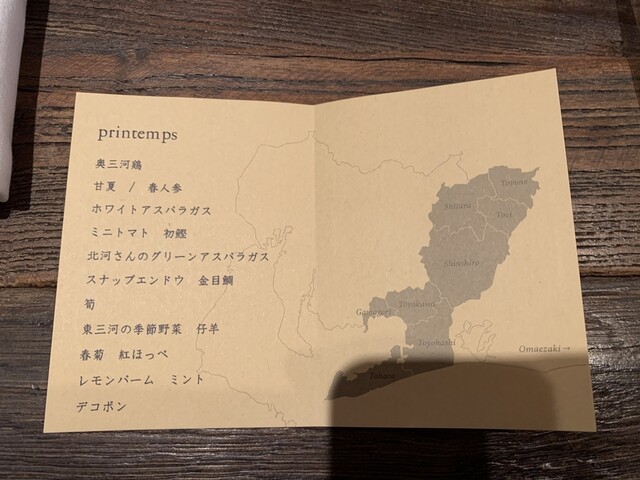 printemps
奥三河鶏
甘夏 / 春人参
ホワイトアスパラガス
ミニトマト 初鰹
北河さんのグリーンアスパラガス
スナップエンドウ 金目鯛
筍
東三河の季節野菜 仔羊
春菊 紅ほっぺ
レモンバーム ミント
デコポン
Toyone
Shitara
Toei
Shinshiro
Toyokawa
Gamagori
Toyohashi
Omaezaki→
Tahara